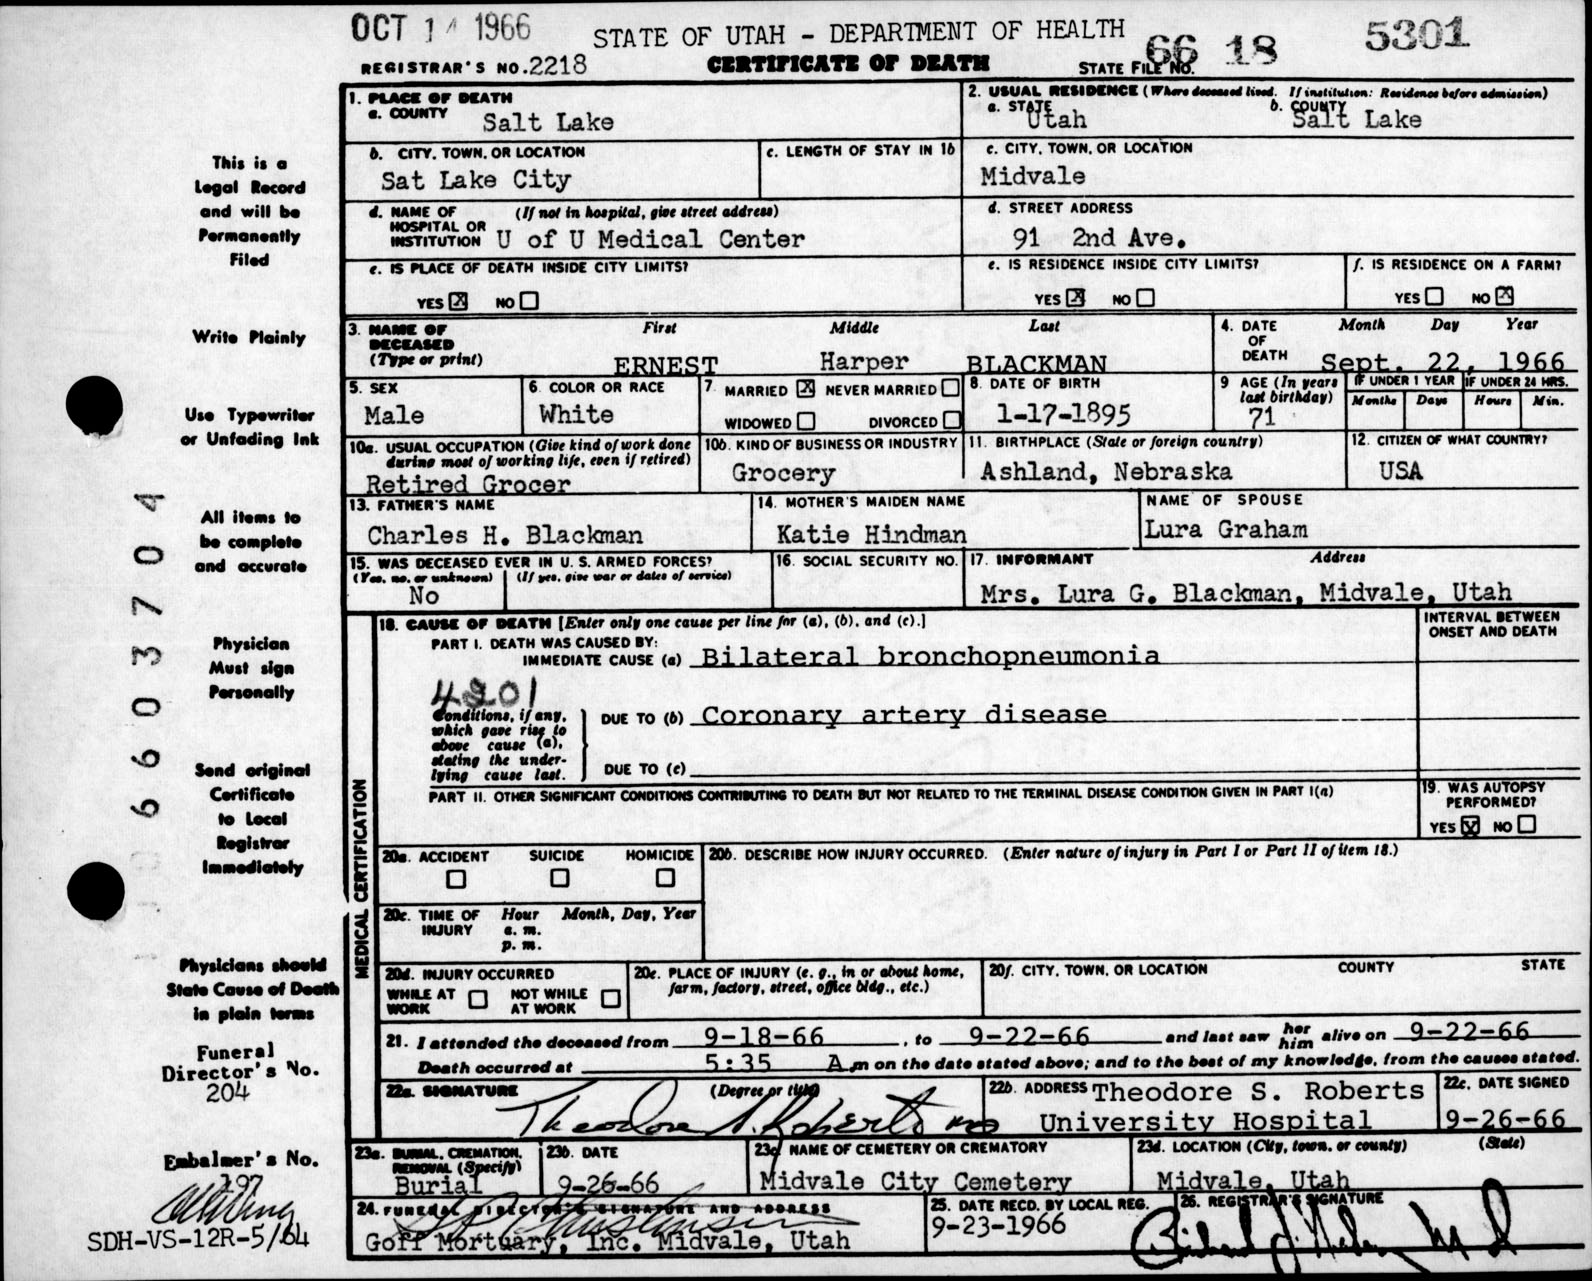 OCT 14 1966
STATE OF UTAH - DEPARTMENT OF HEALTH
66 18 5301
REGISTRAR'S NO. 2218
CERTIFICATE OF DEATH
STATE FILE NO.
This is a
Legal Record
and will be
Permanently
Filed
Write Plainly
Use Typewriter
or Unfading Ink
All items to
be complete
and accurate
Physician
Must sign
Personally
Send original
Certificate
to Local
Registrar
Immediately
Physicians should
State Cause of Death
in plain terms
Funeral
Director's No.
204
Embalmer's No.
197
SDH-VS-12R-5/64
6603704
1. PLACE OF DEATH
a. COUNTY
Salt Lake
2. USUAL RESIDENCE (Where deceased lived. If institution: Residence before admission)
a. STATE
Utah
b. COUNTY
Salt Lake
b. CITY, TOWN, OR LOCATION
Sat Lake City
c. LENGTH OF STAY IN 1b
c. CITY, TOWN, OR LOCATION
Midvale
d. NAME OF HOSPITAL OR INSTITUTION (If not in hospital, give street address)
U of U Medical Center
d. STREET ADDRESS
91 2nd Ave.
e. IS PLACE OF DEATH INSIDE CITY LIMITS?
YES X NO
e. IS RESIDENCE INSIDE CITY LIMITS?
YES X NO
f. IS RESIDENCE ON A FARM?
YES NO X
3. NAME OF DECEASED (Type or print)
First Middle Last
ERNEST Harper BLACKMAN
4. DATE OF DEATH
Month Day Year
Sept. 22, 1966
5. SEX
Male
6. COLOR OR RACE
White
7. MARRIED X NEVER MARRIED
WIDOWED DIVORCED
8. DATE OF BIRTH
1-17-1895
9 AGE (In years last birthday)
71
IF UNDER 1 YEAR
Months Days
IF UNDER 24 HRS.
Hours Min.
10a. USUAL OCCUPATION (Give kind of work done during most of working life, even if retired)
Retired Grocer
10b. KIND OF BUSINESS OR INDUSTRY
Grocery
11. BIRTHPLACE (State or foreign country)
Ashland, Nebraska
12. CITIZEN OF WHAT COUNTRY?
USA
13. FATHER'S NAME
Charles H. Blackman
14. MOTHER'S MAIDEN NAME
Katie Hindman
NAME OF SPOUSE
Lura Graham
15. WAS DECEASED EVER IN U. S. ARMED FORCES?
(Yes, no, or unknown) (If yes, give war or dates of service)
No
16. SOCIAL SECURITY NO.
17. INFORMANT Address
Mrs. Lura G. Blackman, Midvale, Utah
MEDICAL CERTIFICATION
18. CAUSE OF DEATH [Enter only one cause per line for (a), (b), and (c).]
INTERVAL BETWEEN
ONSET AND DEATH
PART I. DEATH WAS CAUSED BY:
IMMEDIATE CAUSE (a) Bilateral bronchopneumonia
4201
Conditions, if any, which gave rise to above cause (a), stating the underlying cause last.
DUE TO (b) Coronary artery disease
DUE TO (c)
PART II. OTHER SIGNIFICANT CONDITIONS CONTRIBUTING TO DEATH BUT NOT RELATED TO THE TERMINAL DISEASE CONDITION GIVEN IN PART I(a)
19. WAS AUTOPSY PERFORMED?
YES X NO
20a. ACCIDENT SUICIDE HOMICIDE
20b. DESCRIBE HOW INJURY OCCURRED. (Enter nature of injury in Part I or Part II of item 18.)
20c. TIME OF INJURY
Hour Month, Day, Year
a. m.
p. m.
20d. INJURY OCCURRED
WHILE AT WORK NOT WHILE AT WORK
20e. PLACE OF INJURY (e. g., in or about home, farm, factory, street, office bldg., etc.)
20f. CITY, TOWN, OR LOCATION COUNTY STATE
21. I attended the deceased from 9-18-66, to 9-22-66 and last saw her him alive on 9-22-66
Death occurred at 5:35 A m on the date stated above; and to the best of my knowledge, from the causes stated.
22a. SIGNATURE (Degree or title)
Theodore S. Roberts MD
22b. ADDRESS Theodore S. Roberts
University Hospital
22c. DATE SIGNED
9-26-66
23a. BURIAL, CREMATION, REMOVAL (Specify)
Burial
23b. DATE
9-26-66
23c. NAME OF CEMETERY OR CREMATORY
Midvale City Cemetery
23d. LOCATION (City, town, or county) (State)
Midvale, Utah
24. FUNERAL DIRECTOR'S SIGNATURE AND ADDRESS
Goff Mortuary, Inc. Midvale, Utah
25. DATE RECD. BY LOCAL REG.
9-23-1966
26. REGISTRAR'S SIGNATURE